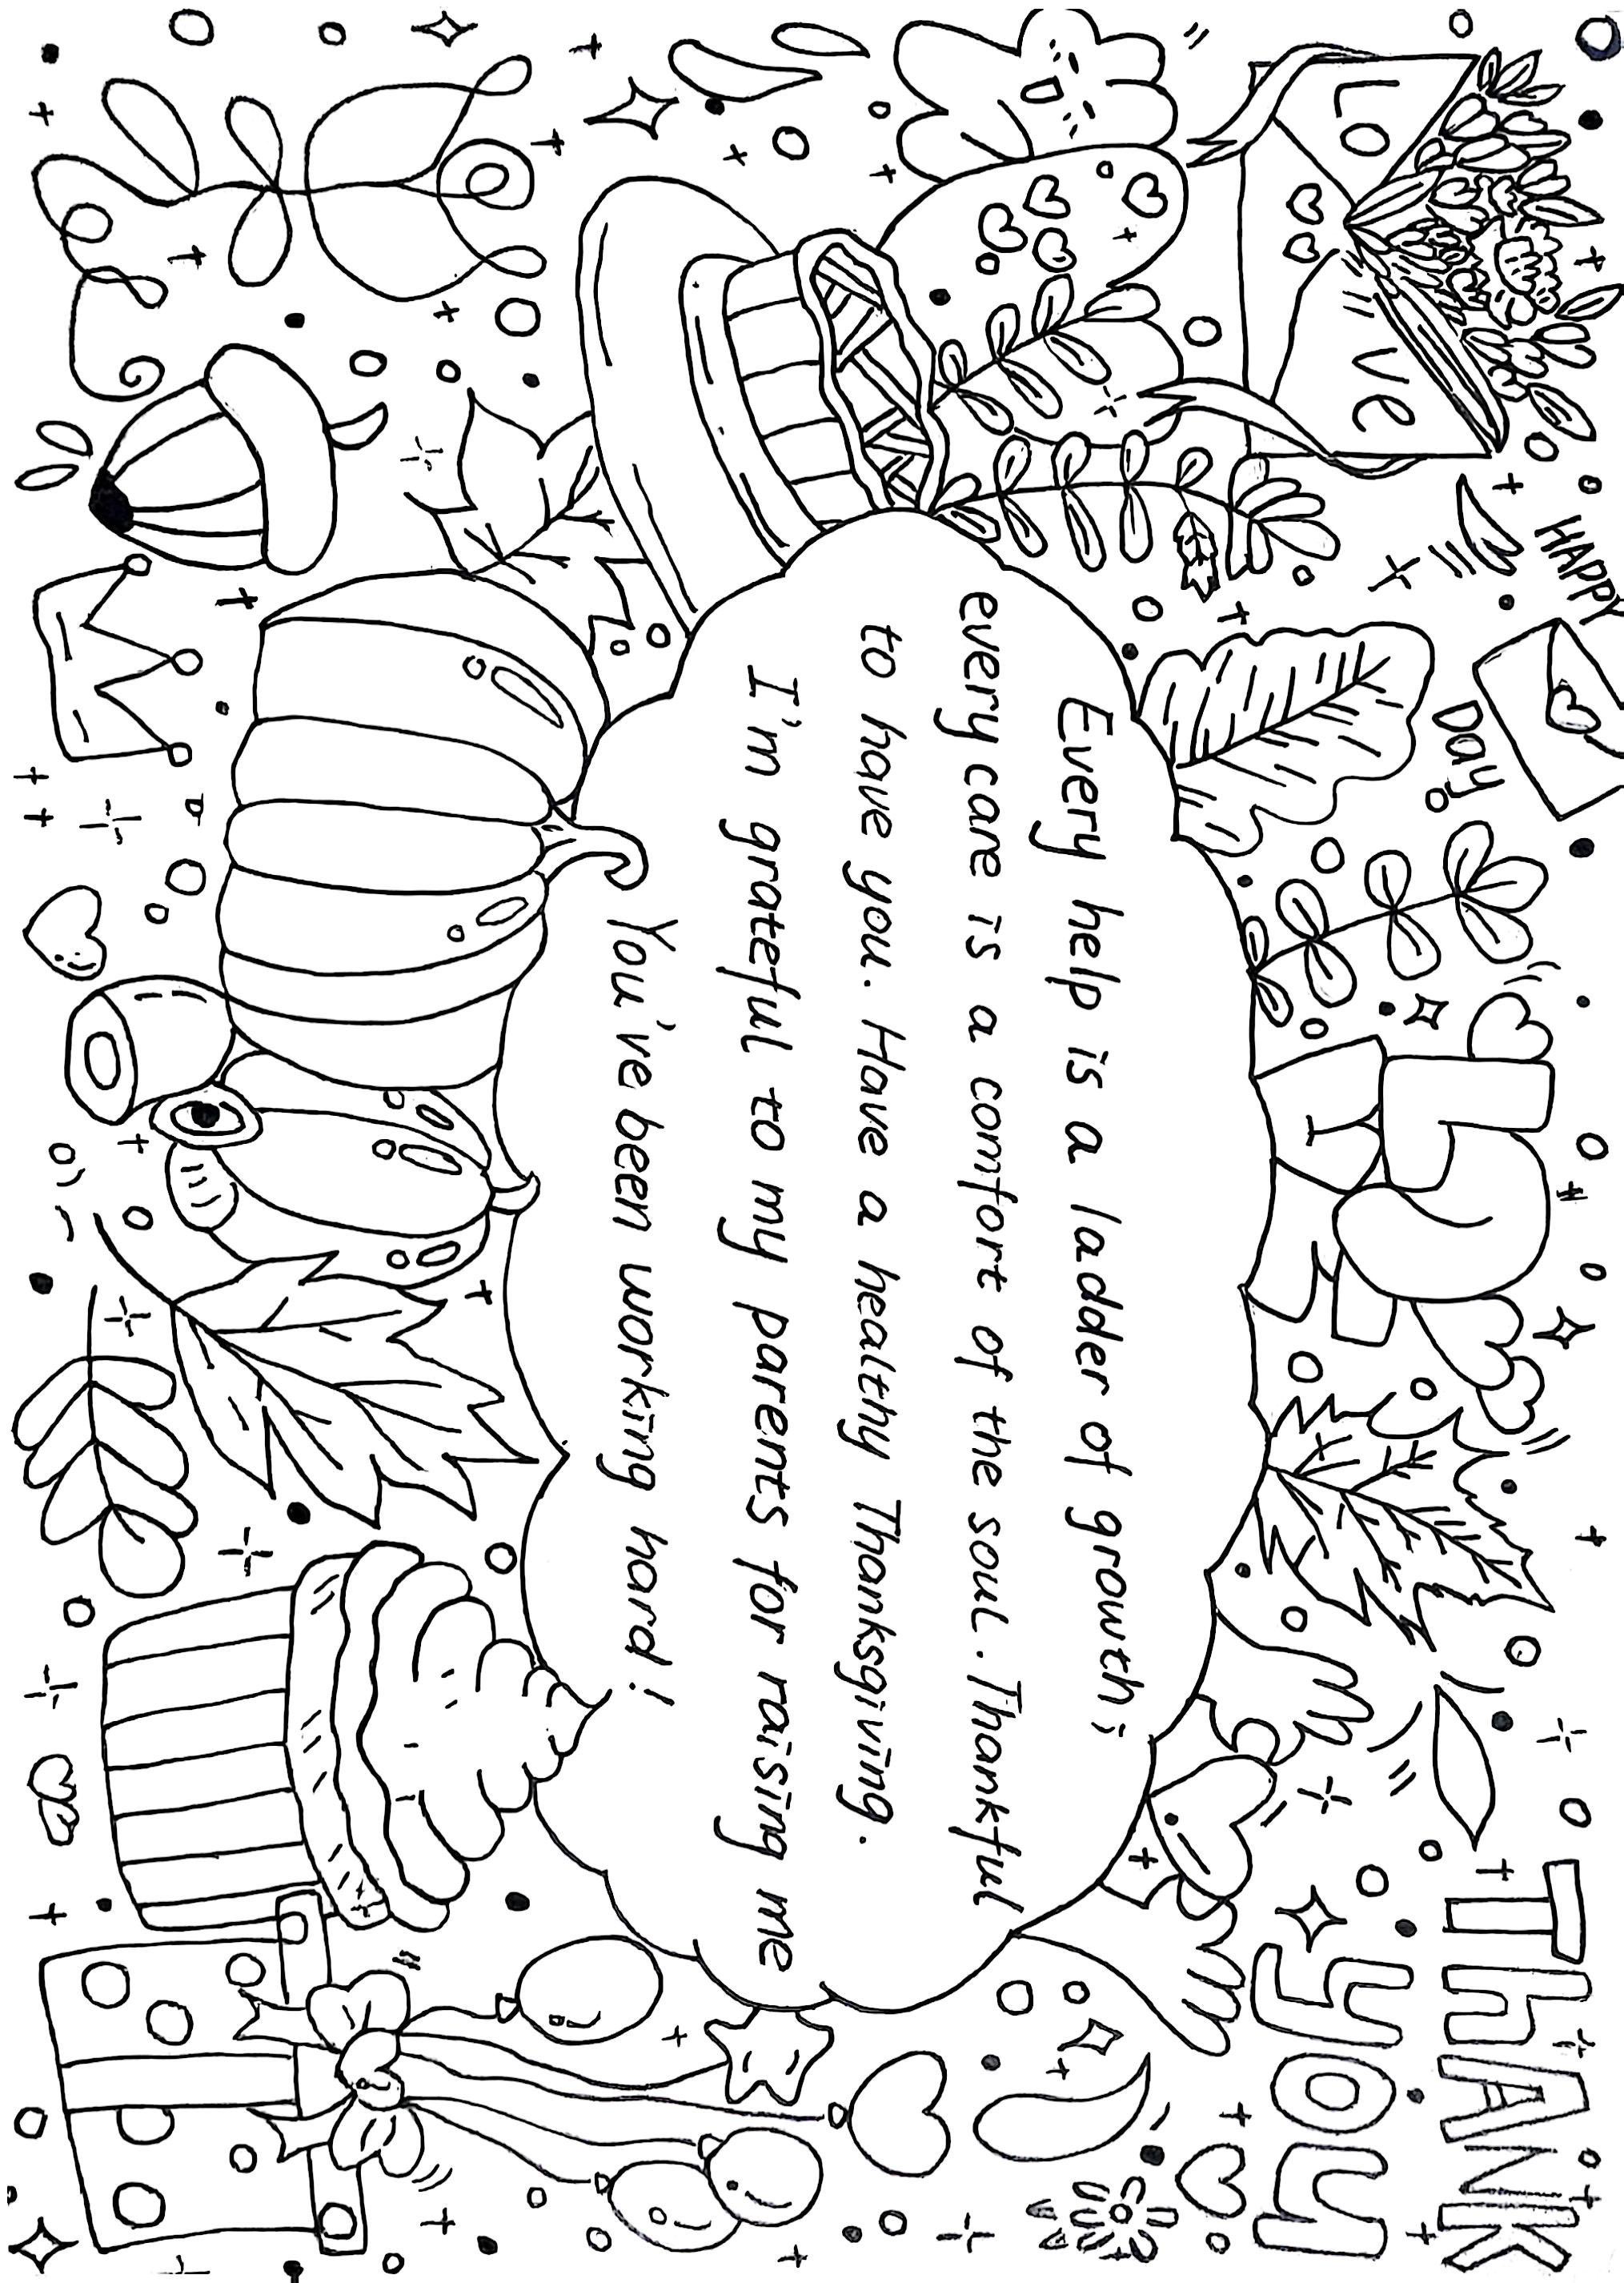 LOve
HAPPY
DAY
THANK
you
Every help is a ladder of growth;
every care is a comfort of the soul. Thankful
to have you. Have a healthy Thanksgiving.
I'm grateful to my parents for raising me
You've been working hard!